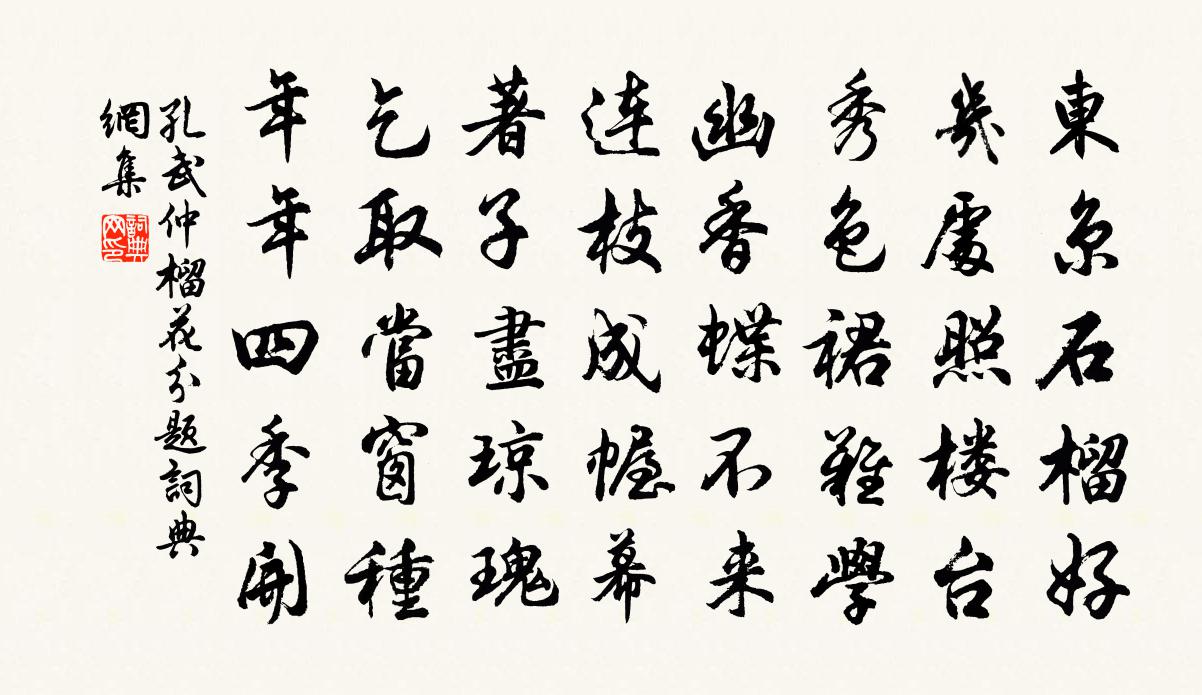 東京石榴好
幾處照楼台
秀色裙難學
幽香蝶不来
連枝成幄幕
著子盡瓊瑰
乞取當窗種
年年四季開
孔武仲榴花分题詞典
網集
詞典
网印